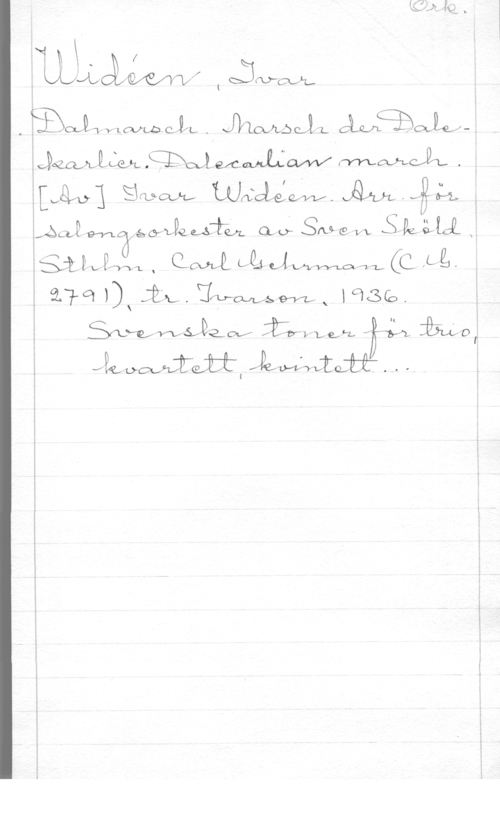 Ork.
Widéen, Ivar
Dalmarsch. Marsch der Dale-
karlier. Dalecarlian march.
[Av] Ivar Widéen. Arr. för
salongsorkester av Sven Sköld.
Sthlm, Carl Gehrman (C.G.
2791), tr. Ivarson, 1936.
Svenska toner för trio,
kvartett, kvintett ...